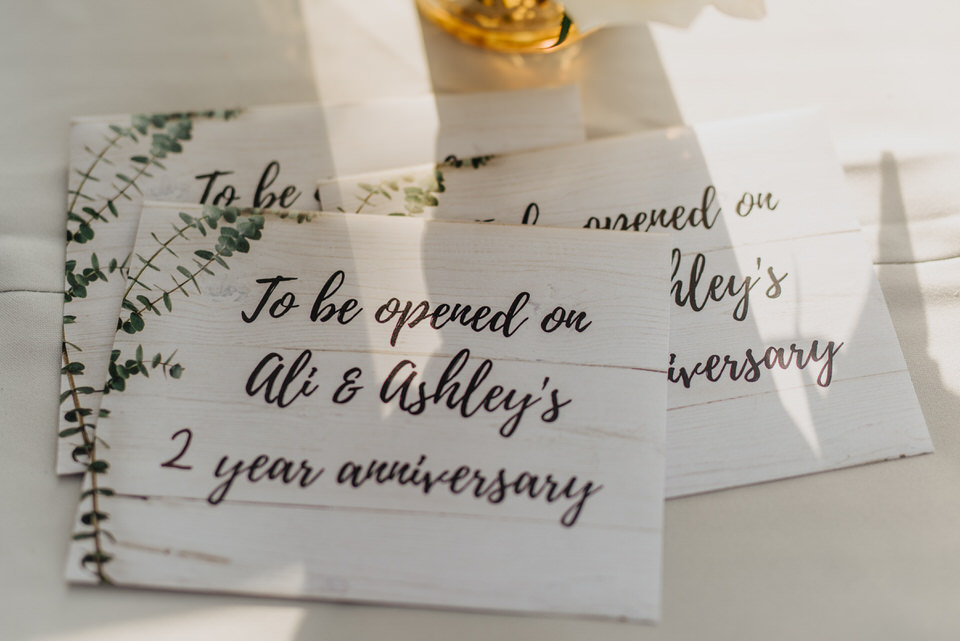 To be
opened on
hley's
iversary
To be opened on
Ali & Ashley's
2 year anniversary